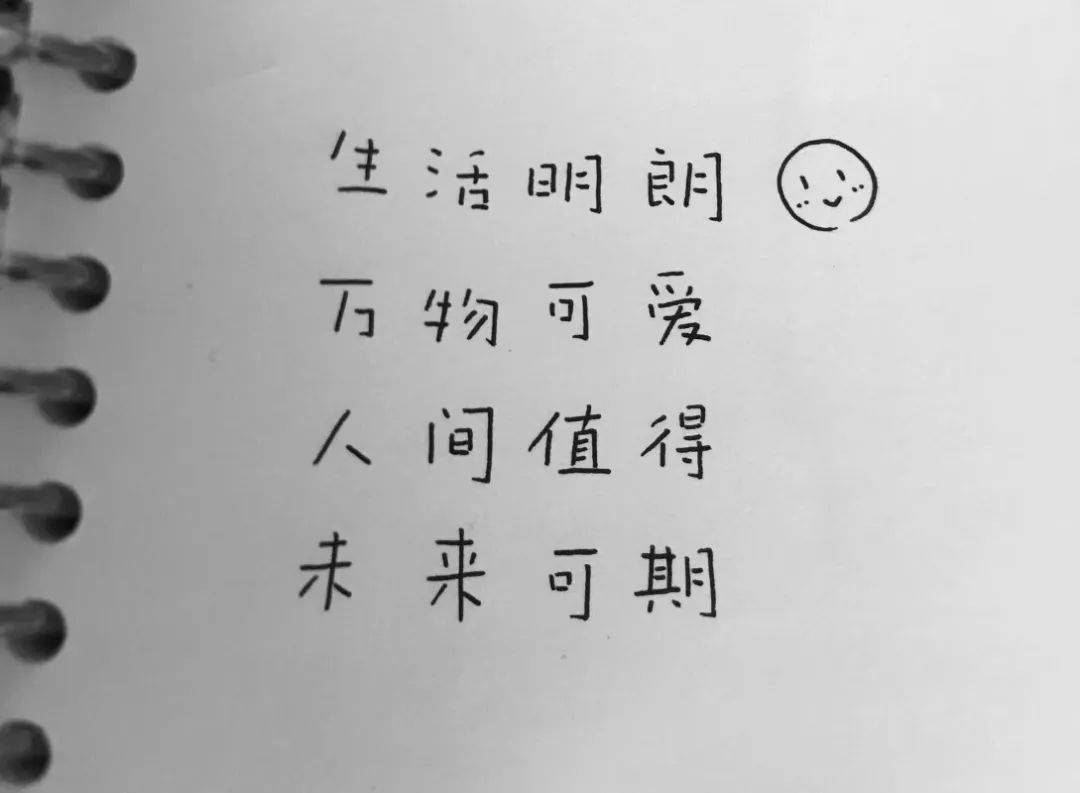 生活明朗
万物可爱
人间值得
未来可期